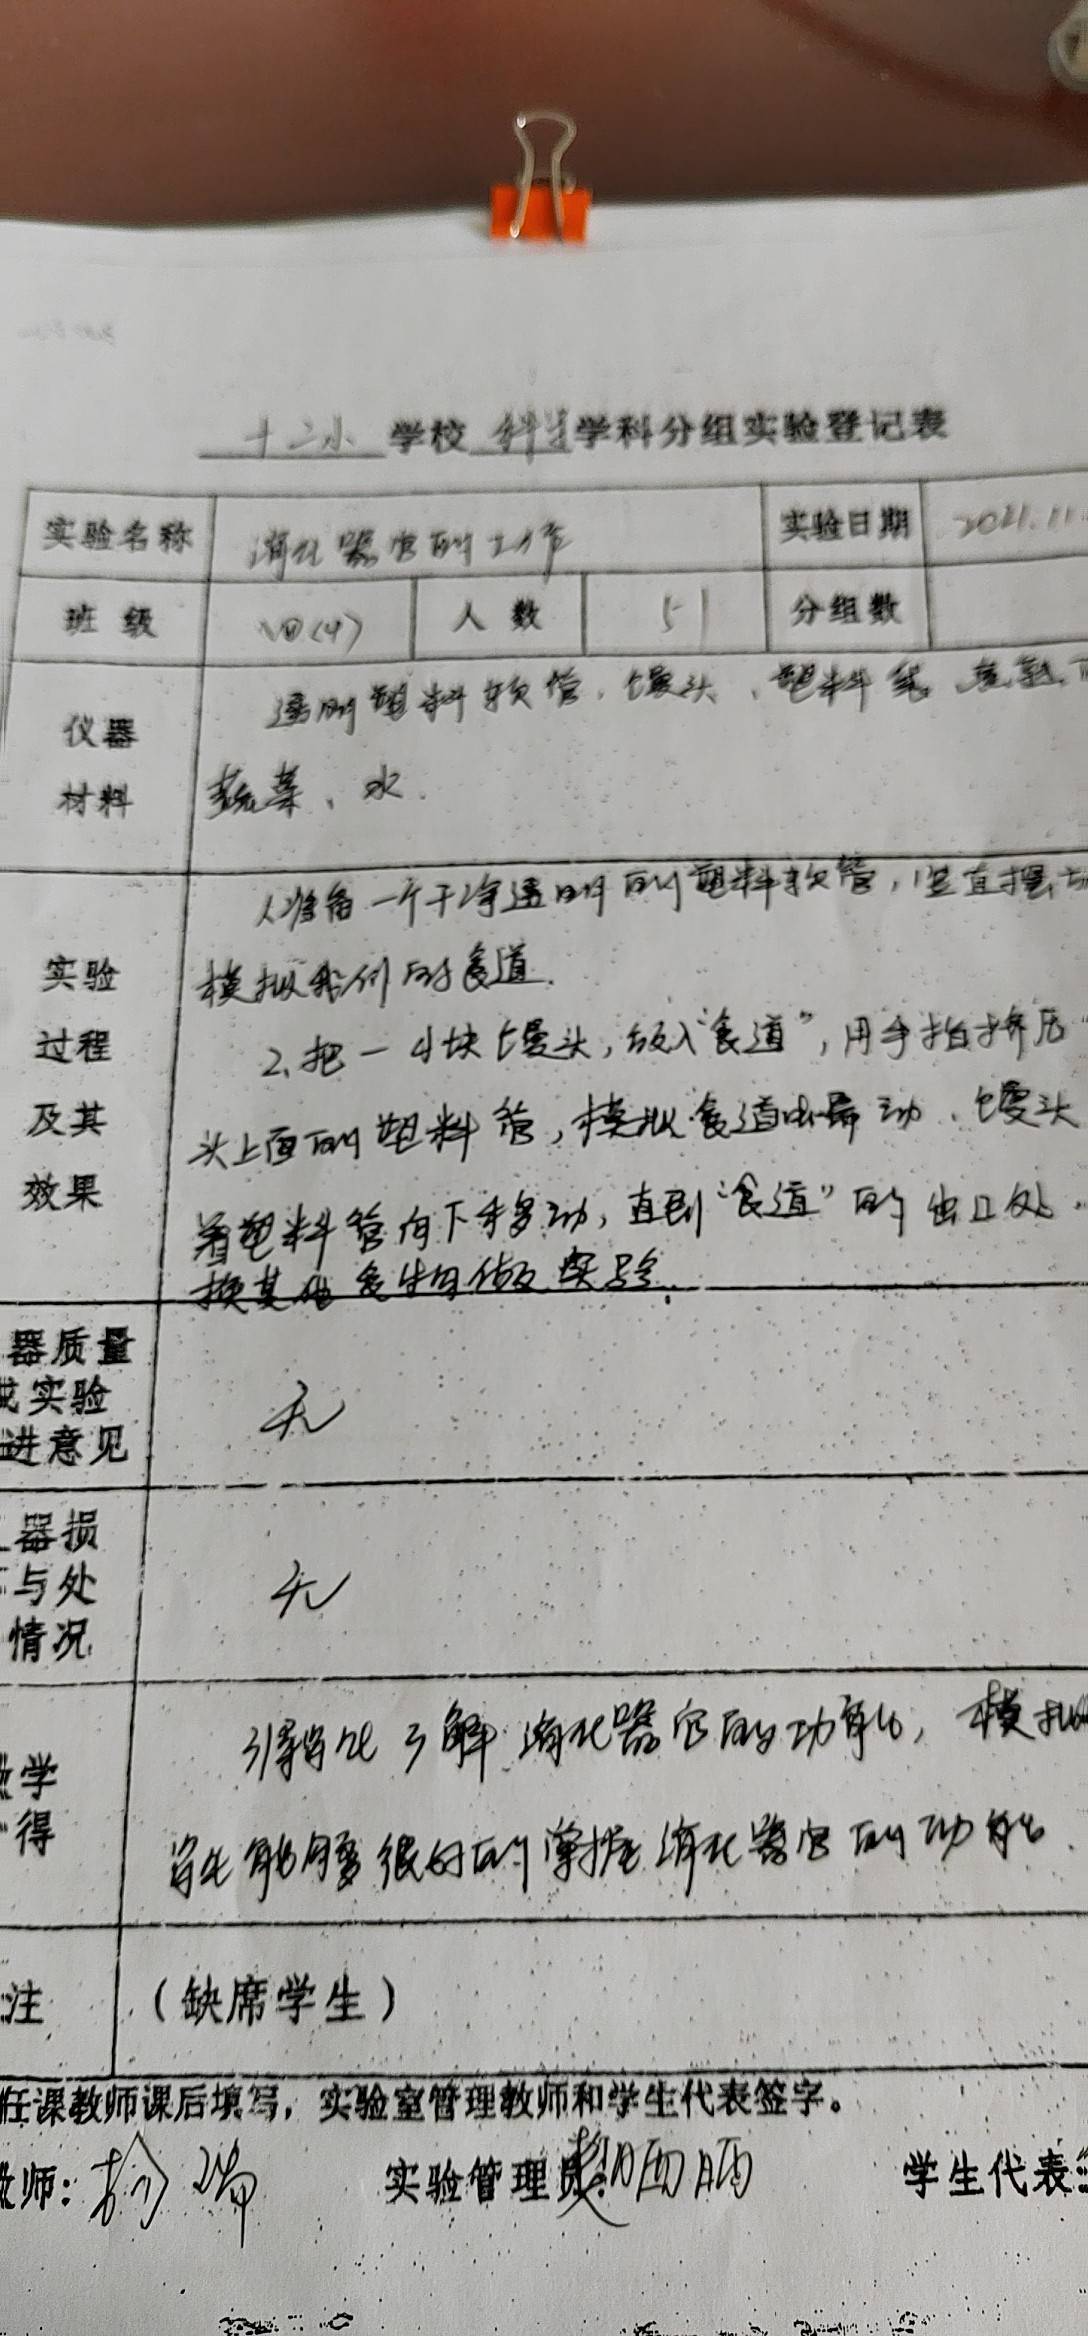 十二小 学校 科学 学科分组实验登记表
实验名称 消化器官的工作 实验日期 2021.11
班 级 四(4) 人 数 51 分组数
仪器 材料 透明塑料软管、馒头、塑料袋、
蔬菜、水.
实验 过程 及其 效果
1、准备一个干净透明的塑料软管,竖直握
模拟我们的食道.
2、把一小块馒头,放入“食道”,用手指挤压
头上面的塑料管,模拟食道蠕动、馒头
着塑料管向下移动,直到“食道”的出口处.
换其他食物做实验.
器质量
实验
进意见 无
器损
与处
情况 无
学
得
学生了解消化器官的功能,模拟
学生能够很好的掌握消化器官的功能.
注 (缺席学生)
任课教师课后填写,实验室管理教师和学生代表签字。
师: 实验管理员: 学生代表